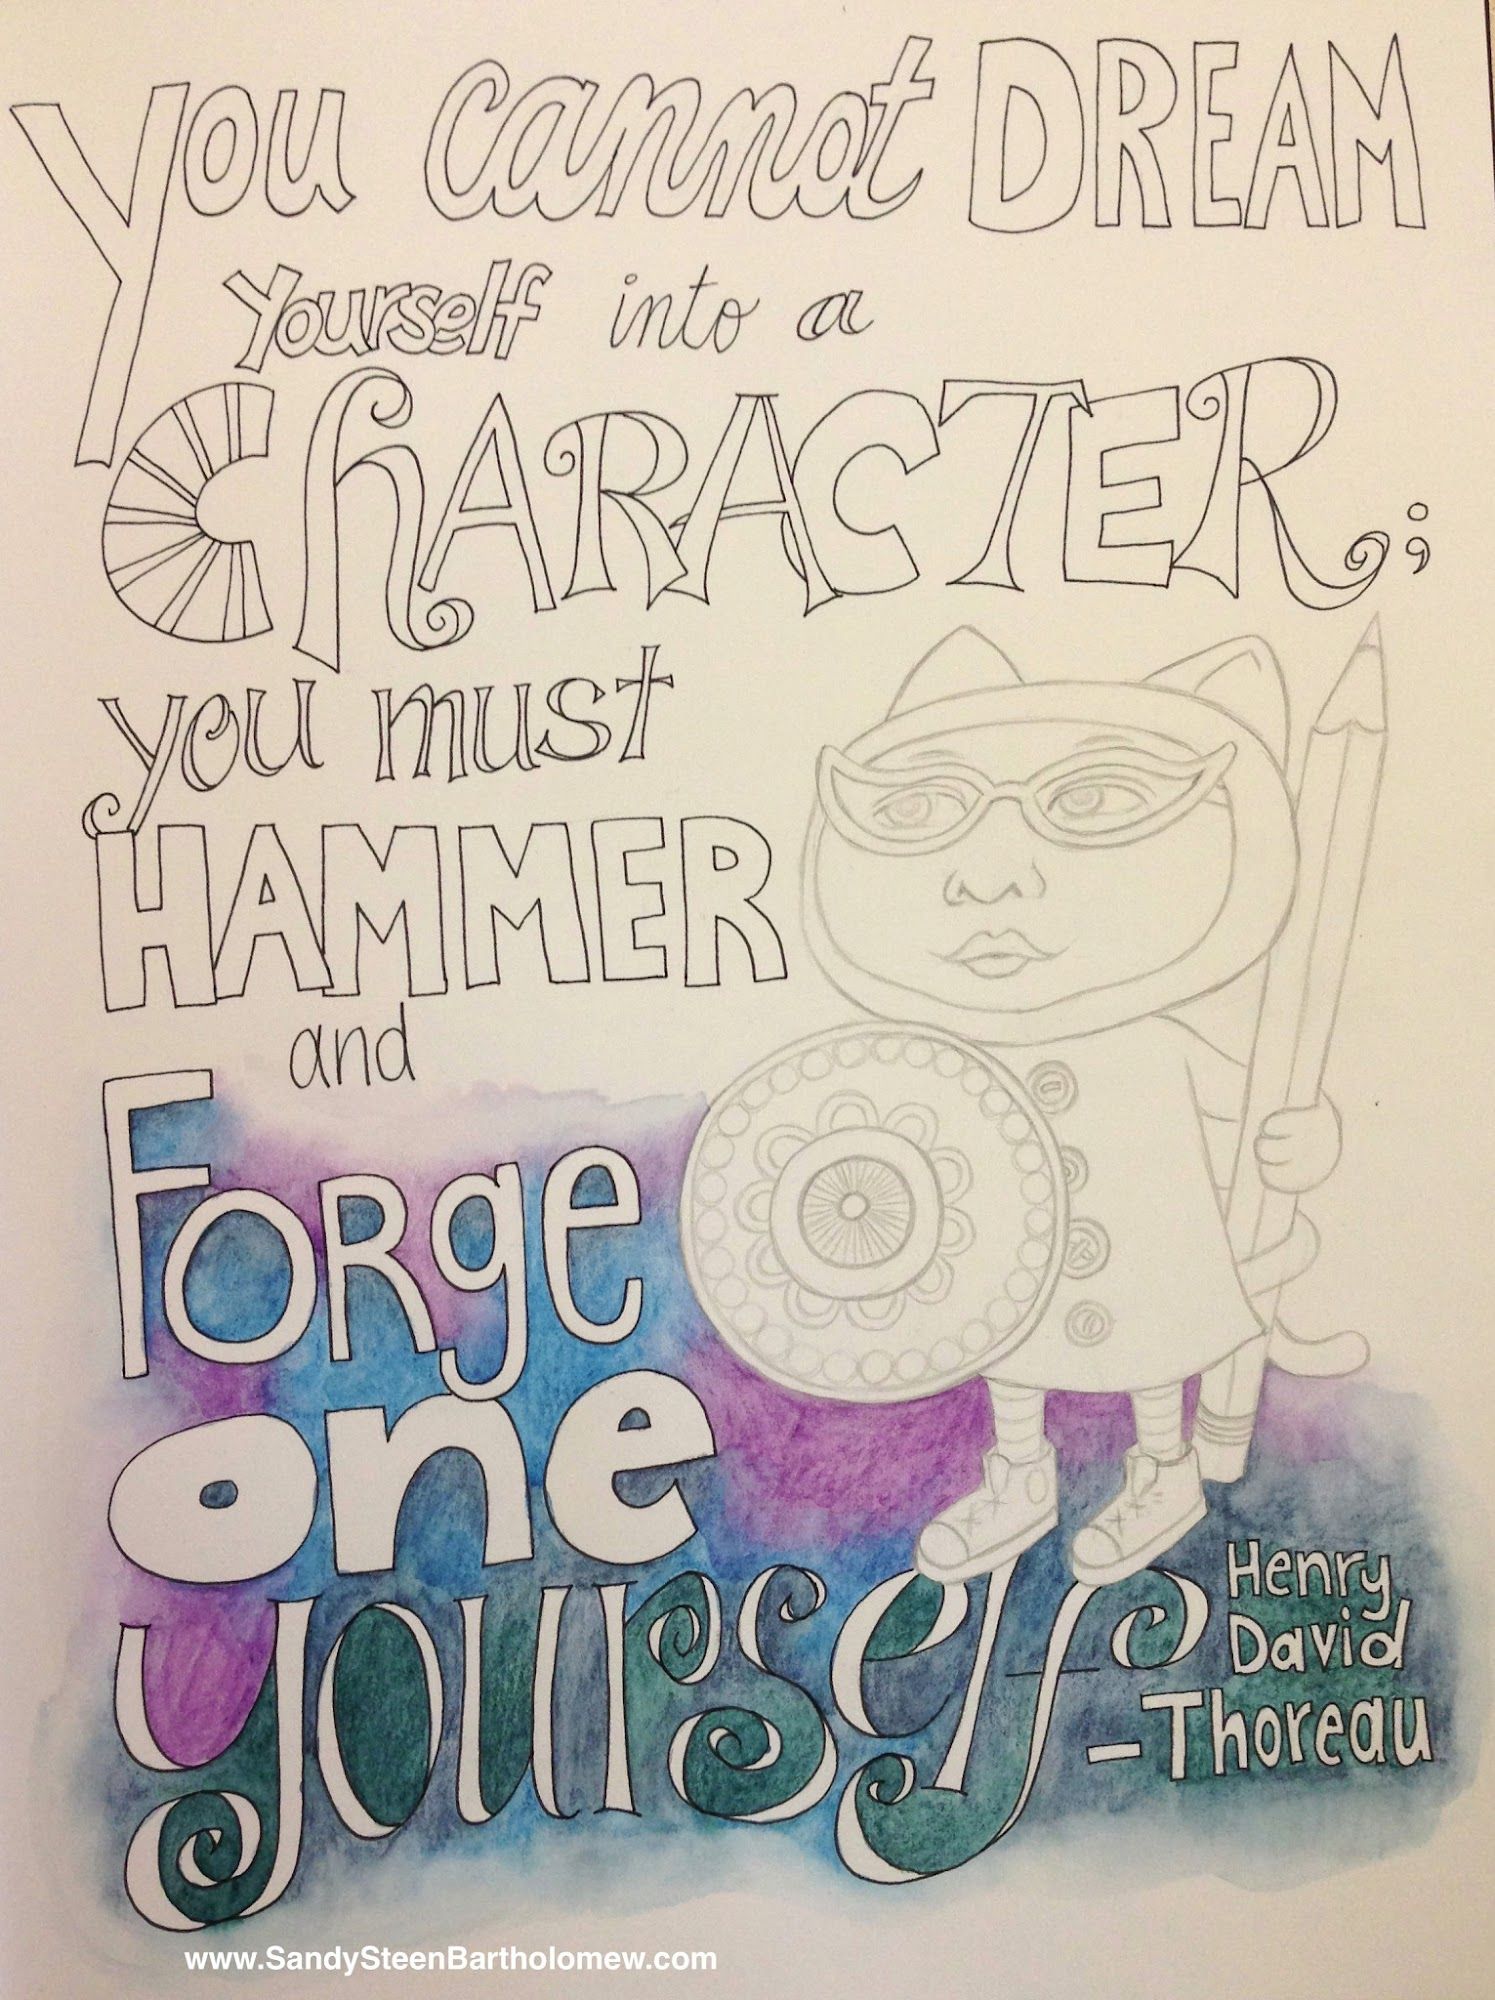 You cannot DREAM
Yourself into a
CHARACTER;
you must
HAMMER
and
Forge
one
yourself
Henry
David
—Thoreau
www.SandySteenBartholomew.com